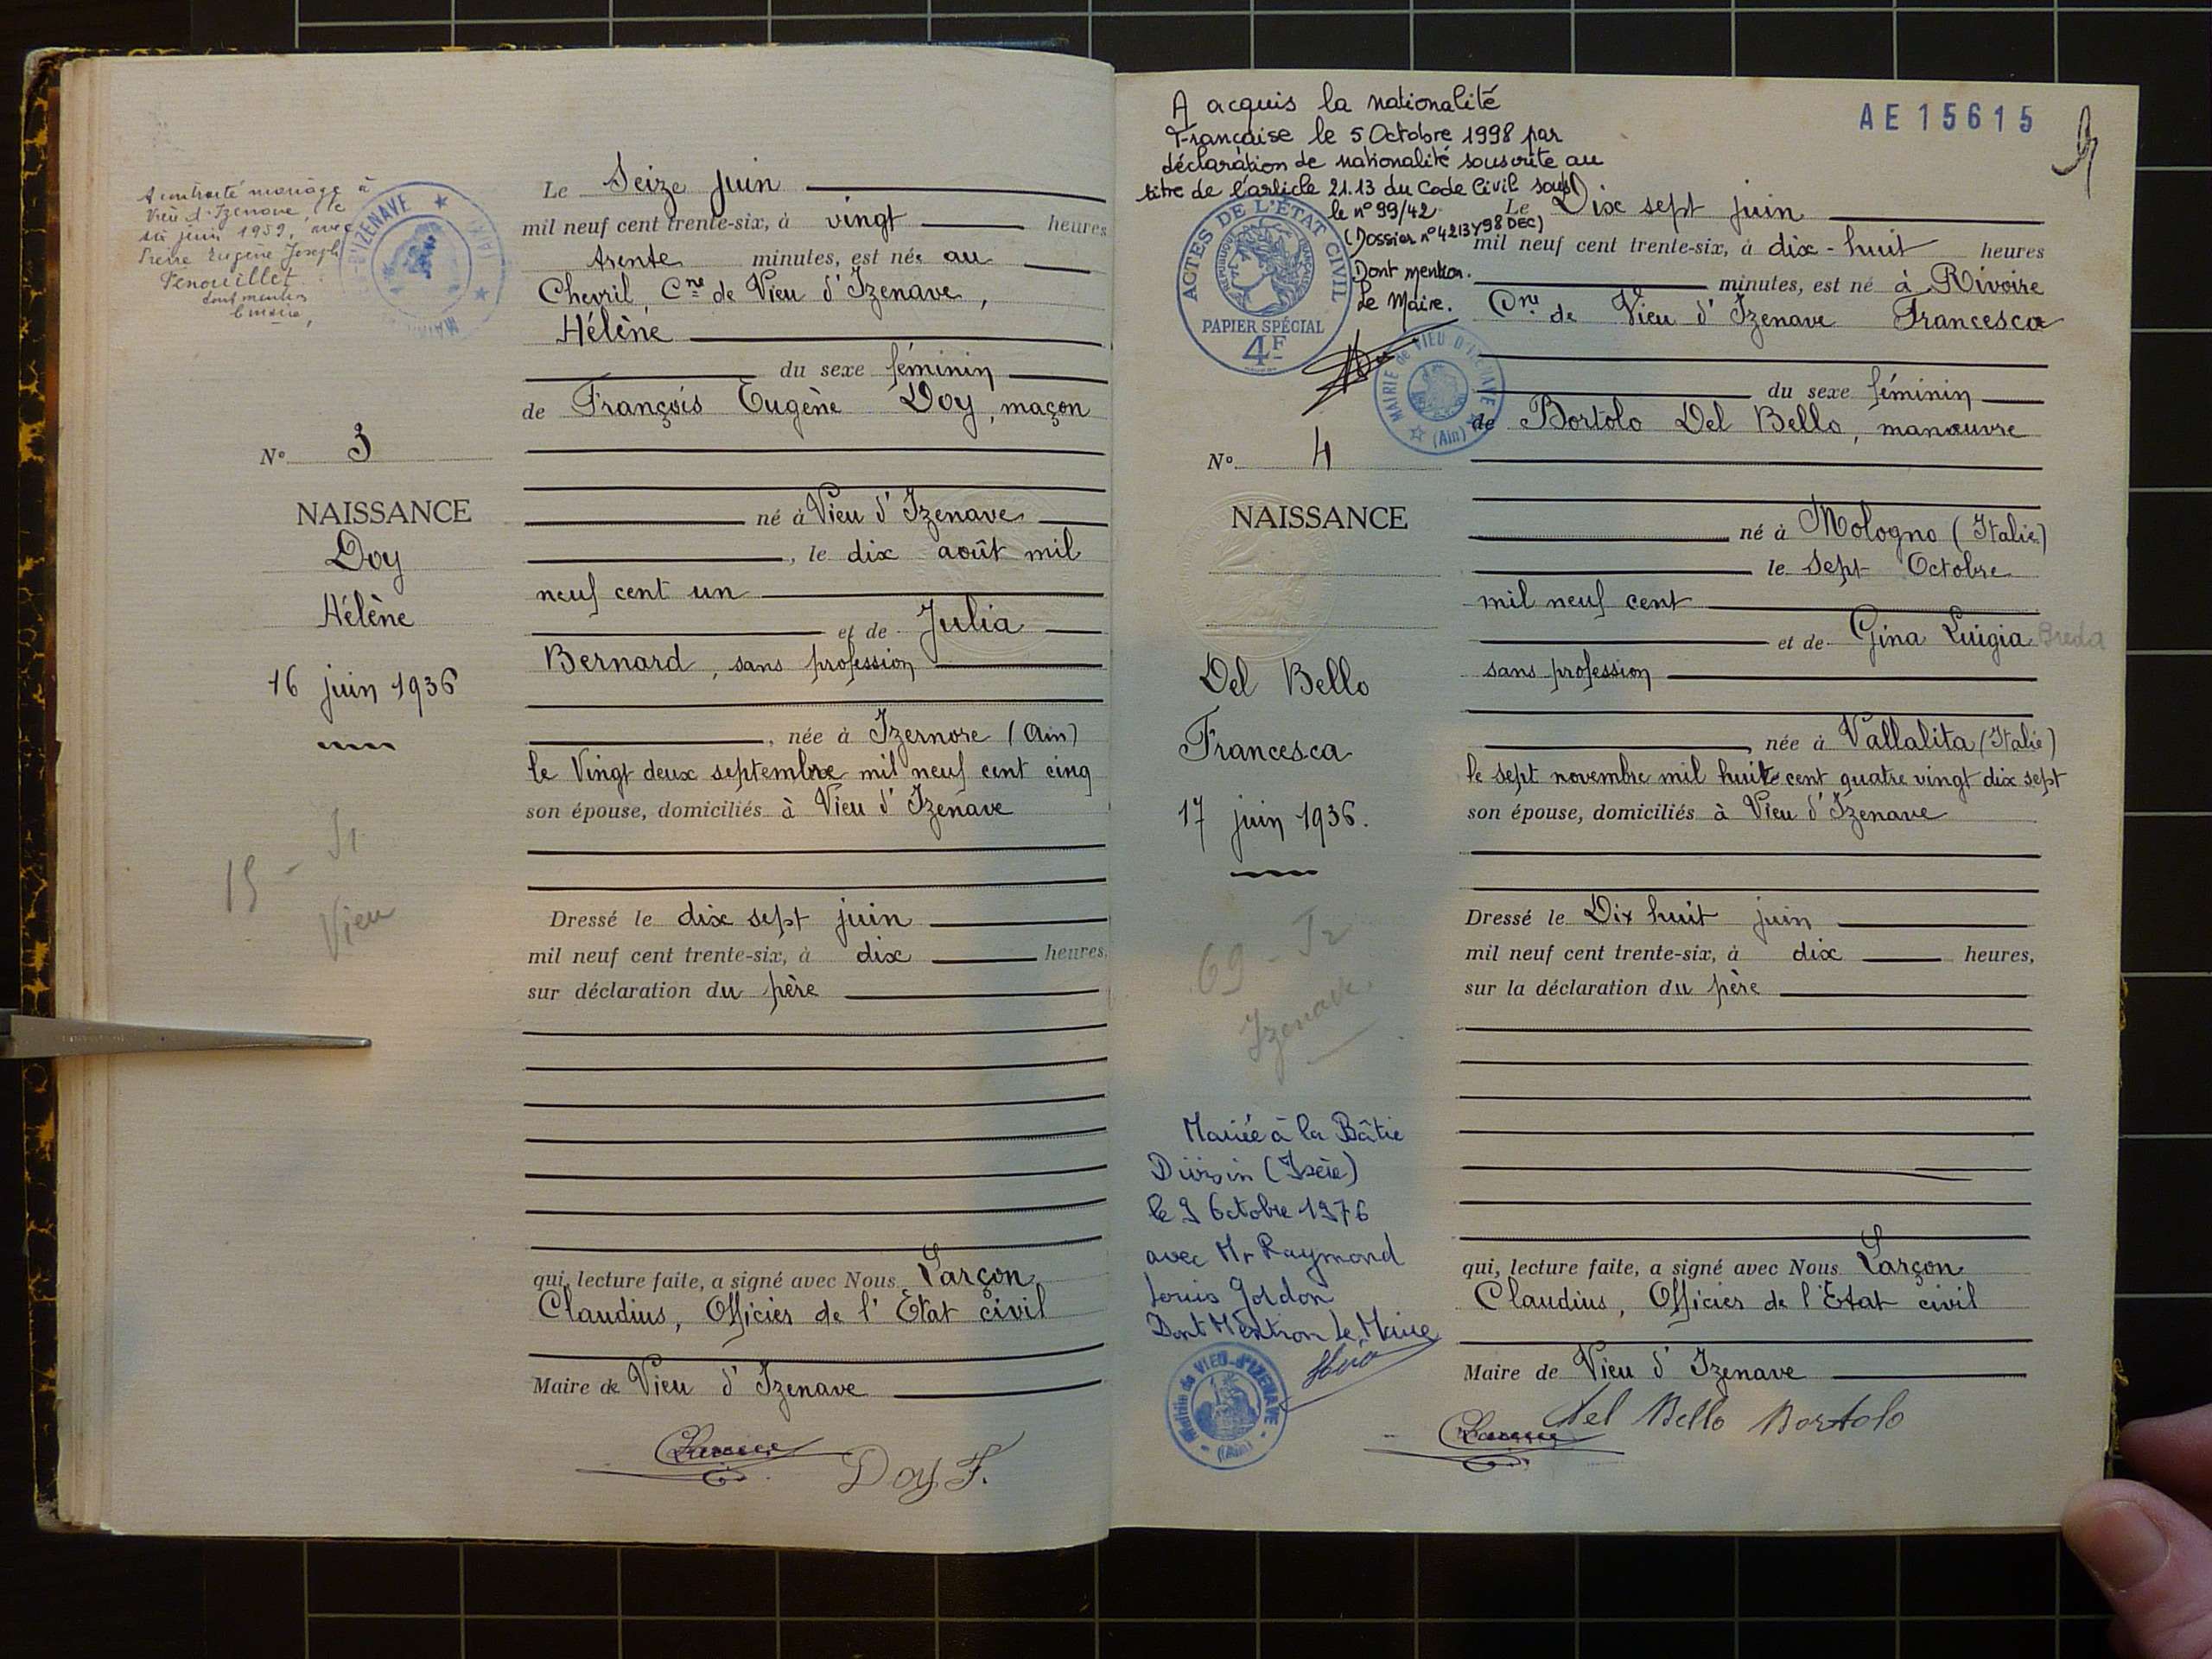 A contracté mariage à
Vieu d'Izenave, le
six juin 1959, avec
Pierre Eugène Joseph
Fenouillet
dont mention
le maire,
D'IZENAVE
Le Seize juin
mil neuf cent trente-six, à vingt heures
trente minutes, est née au
Chevril Cne de Vieu d'Izenave,
Hélène
du sexe féminin
de François Eugène Doy, maçon
N° 3
NAISSANCE
Doy
Hélène
16 juin 1936
né à Vieu d'Izenave
, le dix août mil
neuf cent un
et de Julia
Bernard, sans profession
, née à Izernore (Ain)
le Vingt deux septembre mil neuf cent cinq
son épouse, domiciliés à Vieu d'Izenave
15 -
Vieu
Dressé le dix sept juin
mil neuf cent trente-six, à dix heures,
sur déclaration du père
qui, lecture faite, a signé avec Nous Larçon
Claudius, Officier de l'Etat civil
Maire de Vieu d'Izenave
Doy F.
A acquis la nationalité
Française le 5 Octobre 1998 par
déclaration de nationalité souscrite au
titre de l'article 21.13 du Code Civil sous
le n° 99/42
(Dossier n° 4213Y98 DEC)
Dont mention.
Le Maire.
AE 15615
ACTES DE L'ÉTAT CIVIL
RÉPUBLIQUE FRANÇAISE
PAPIER SPÉCIAL
4F
MAIRIE de VIEU D'IZENAVE
(Ain)
Le Dix sept juin
mil neuf cent trente-six, à dix-huit heures
minutes, est né à Rivoire
Cne de Vieu d'Izenave Francesca
du sexe féminin
de Bortolo Del Bello, manœuvre
N° 4
NAISSANCE
Del Bello
Francesca
17 juin 1936.
né à Mologno (Italie)
le sept Octobre
mil neuf cent
et de Gina Luigia Breda
sans profession
, née à Vallalita (Italie)
le sept novembre mil huit cent quatre vingt dix sept
son épouse, domiciliés à Vieu d'Izenave
69 -
Izenave.
Dressé le Dix huit juin
mil neuf cent trente-six, à dix heures,
sur la déclaration du père
Mariée à la Bâtie
Divisin (Isère)
le 9 Octobre 1976
avec Mr Raymond
Louis Gordon
Dont Mention Le Maire
Mairie de VIEU-D'IZENAVE
(Ain)
qui, lecture faite, a signé avec Nous Larçon
Claudius, Officier de l'Etat civil
Maire de Vieu d'Izenave
Del Bello Bortolo